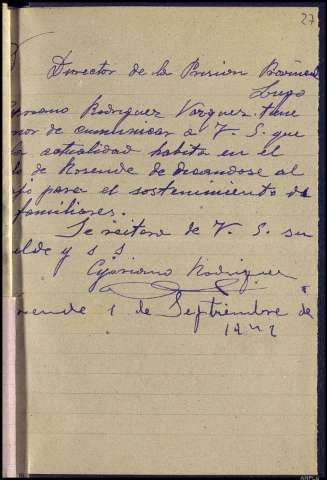 27
Director de la Prision Provincial
Lugo
Rodriguez Vazquez, tiene
nor de cumunicar a V. S. que
la actualidad habita en el
de Rosende dedicandose al
para el sostenimiento de
familiares.
Se reitera de V. S. su
ilde y s s
Cypriano Rodriguez
1 de Septiembre de